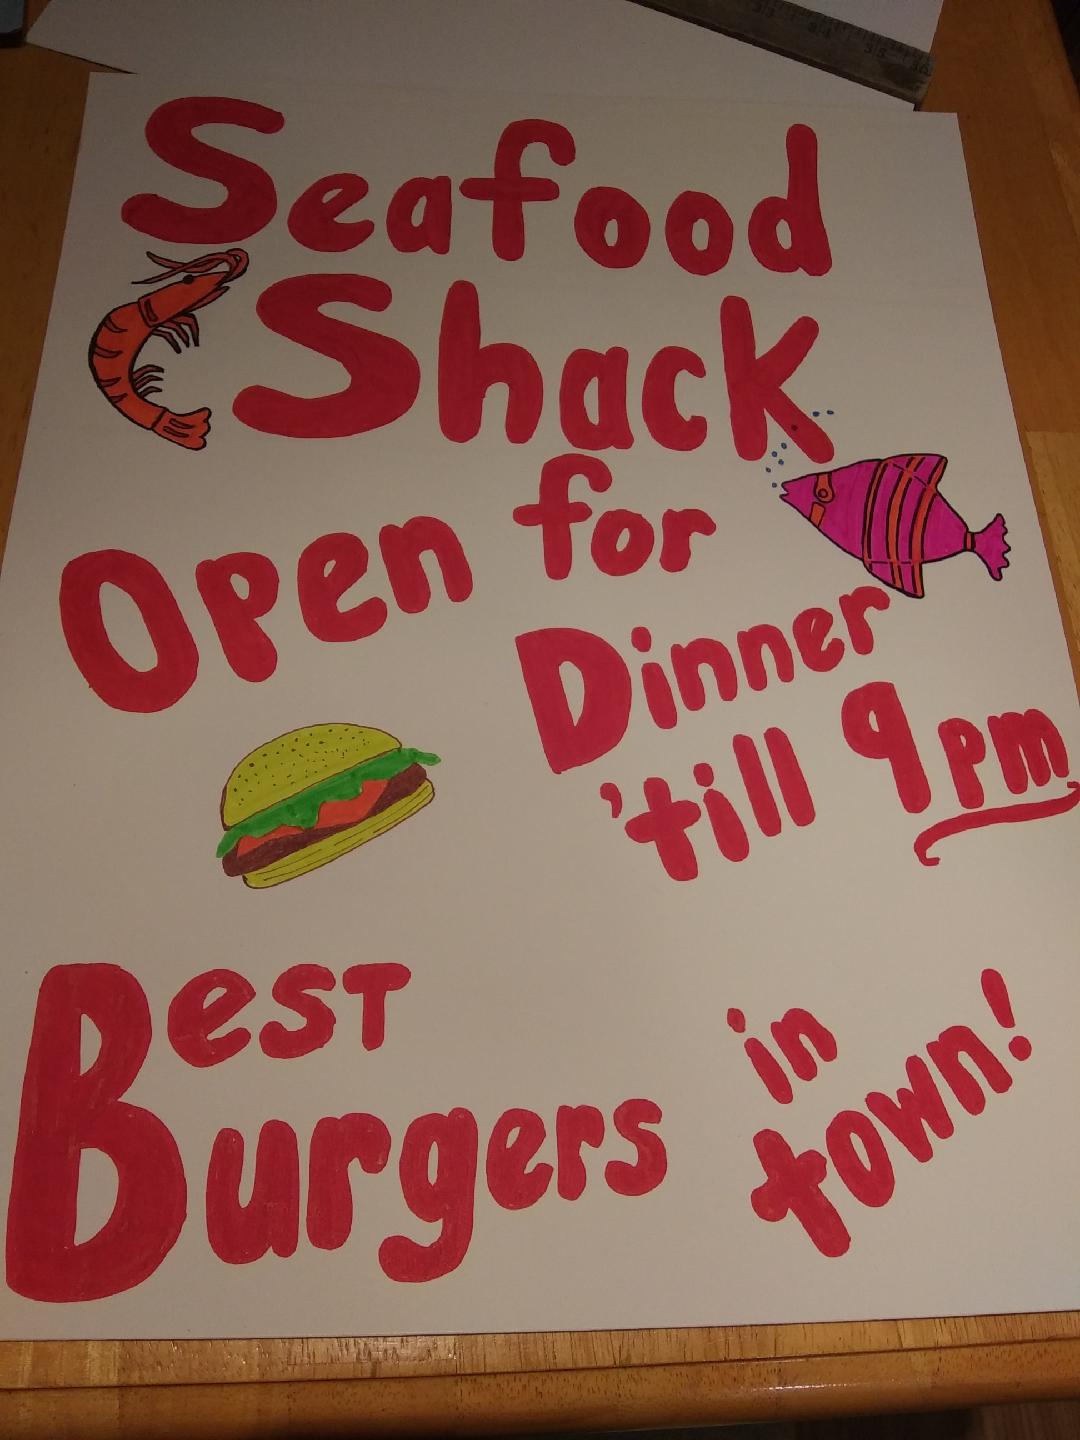 Seafood
Shack
Open for
Dinner
'till 9pm
Best
Burgers
in
town!